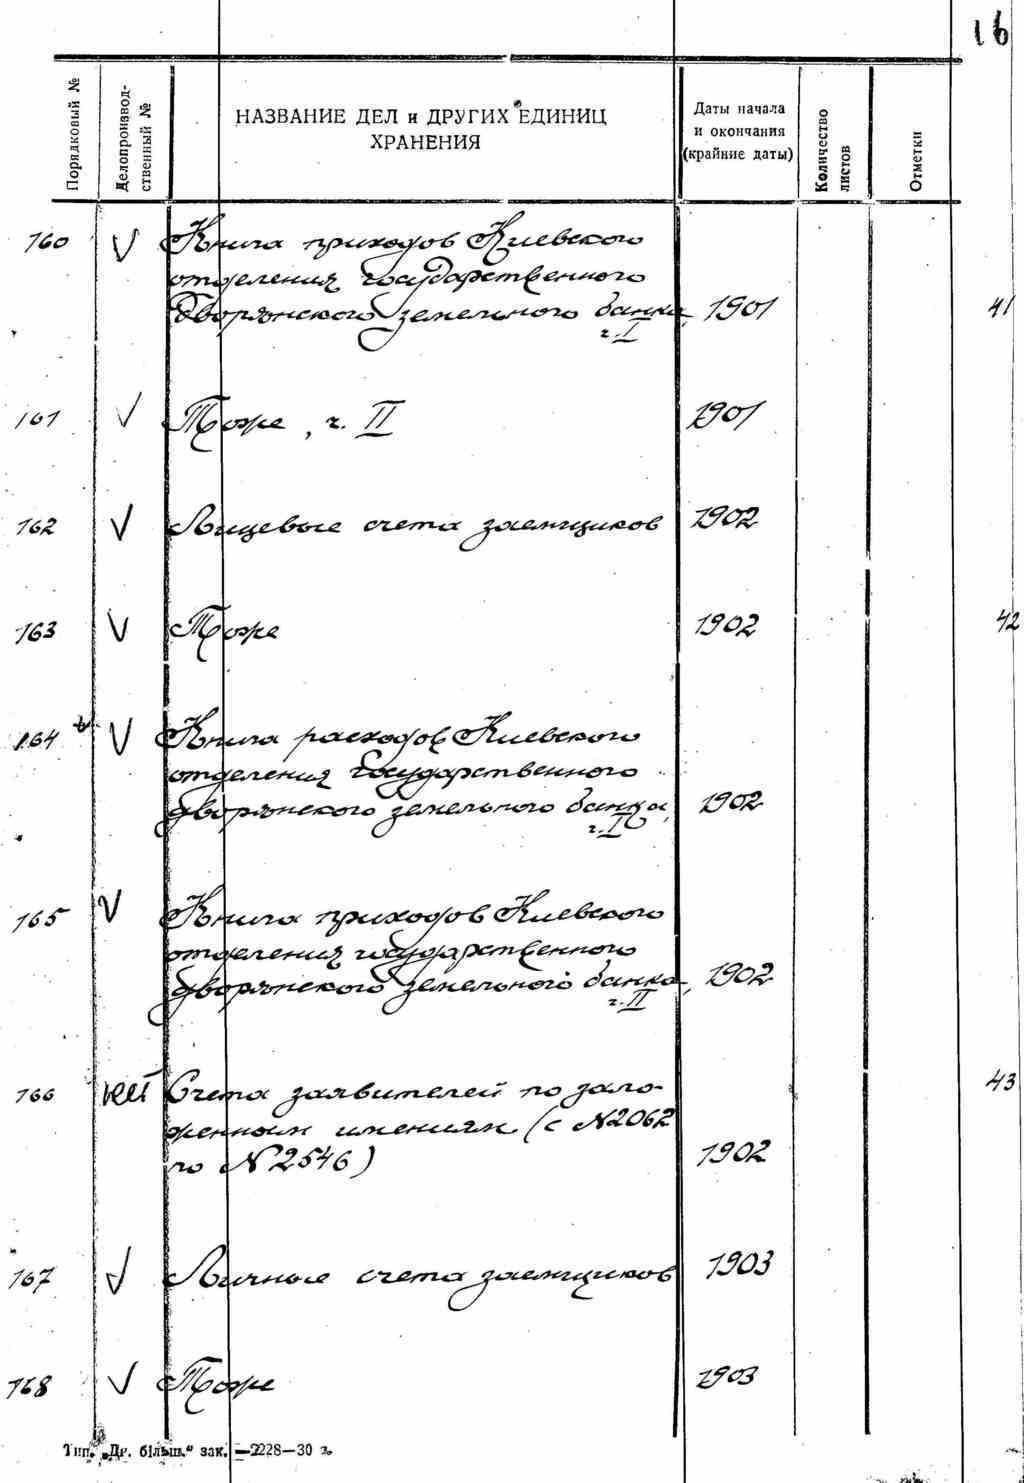 16
Порядковый №
Делопроизвод-
ственный №
НАЗВАНИЕ ДЕЛ и ДРУГИХ ЕДИНИЦ
ХРАНЕНИЯ
Даты начала
и окончания
(крайние даты)
Количество
листов
Отметки
160 V Книга приходов Киевского
отделения государственного
дворянского земельного банка, 1901 41
ч. I
161 V Тоже, ч. II 1901
162 V Лицевые счета заемщиков 1902
163 V Тоже 1902 42
164 V Книга расходов Киевского
отделения Государственного
дворянского земельного банка, 1902
ч. I
165 V Книга приходов Киевского
отделения государственного
дворянского земельного банка, 1902
ч. II
166 нет Счета заявителей по зало- 43
женным имениям (с №2062
по №2546) 1902
167 V Личные счета заемщиков 1903
168 V Тоже 1903
Тип. „Др. більш.“ зак. —2228—30 г.